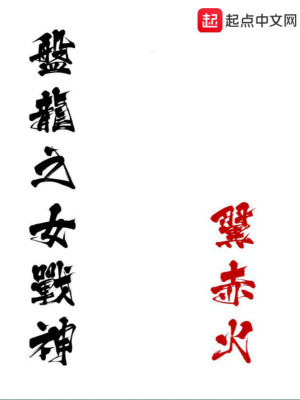 起 起点中文网
盤龍之女戰神
翼赤火